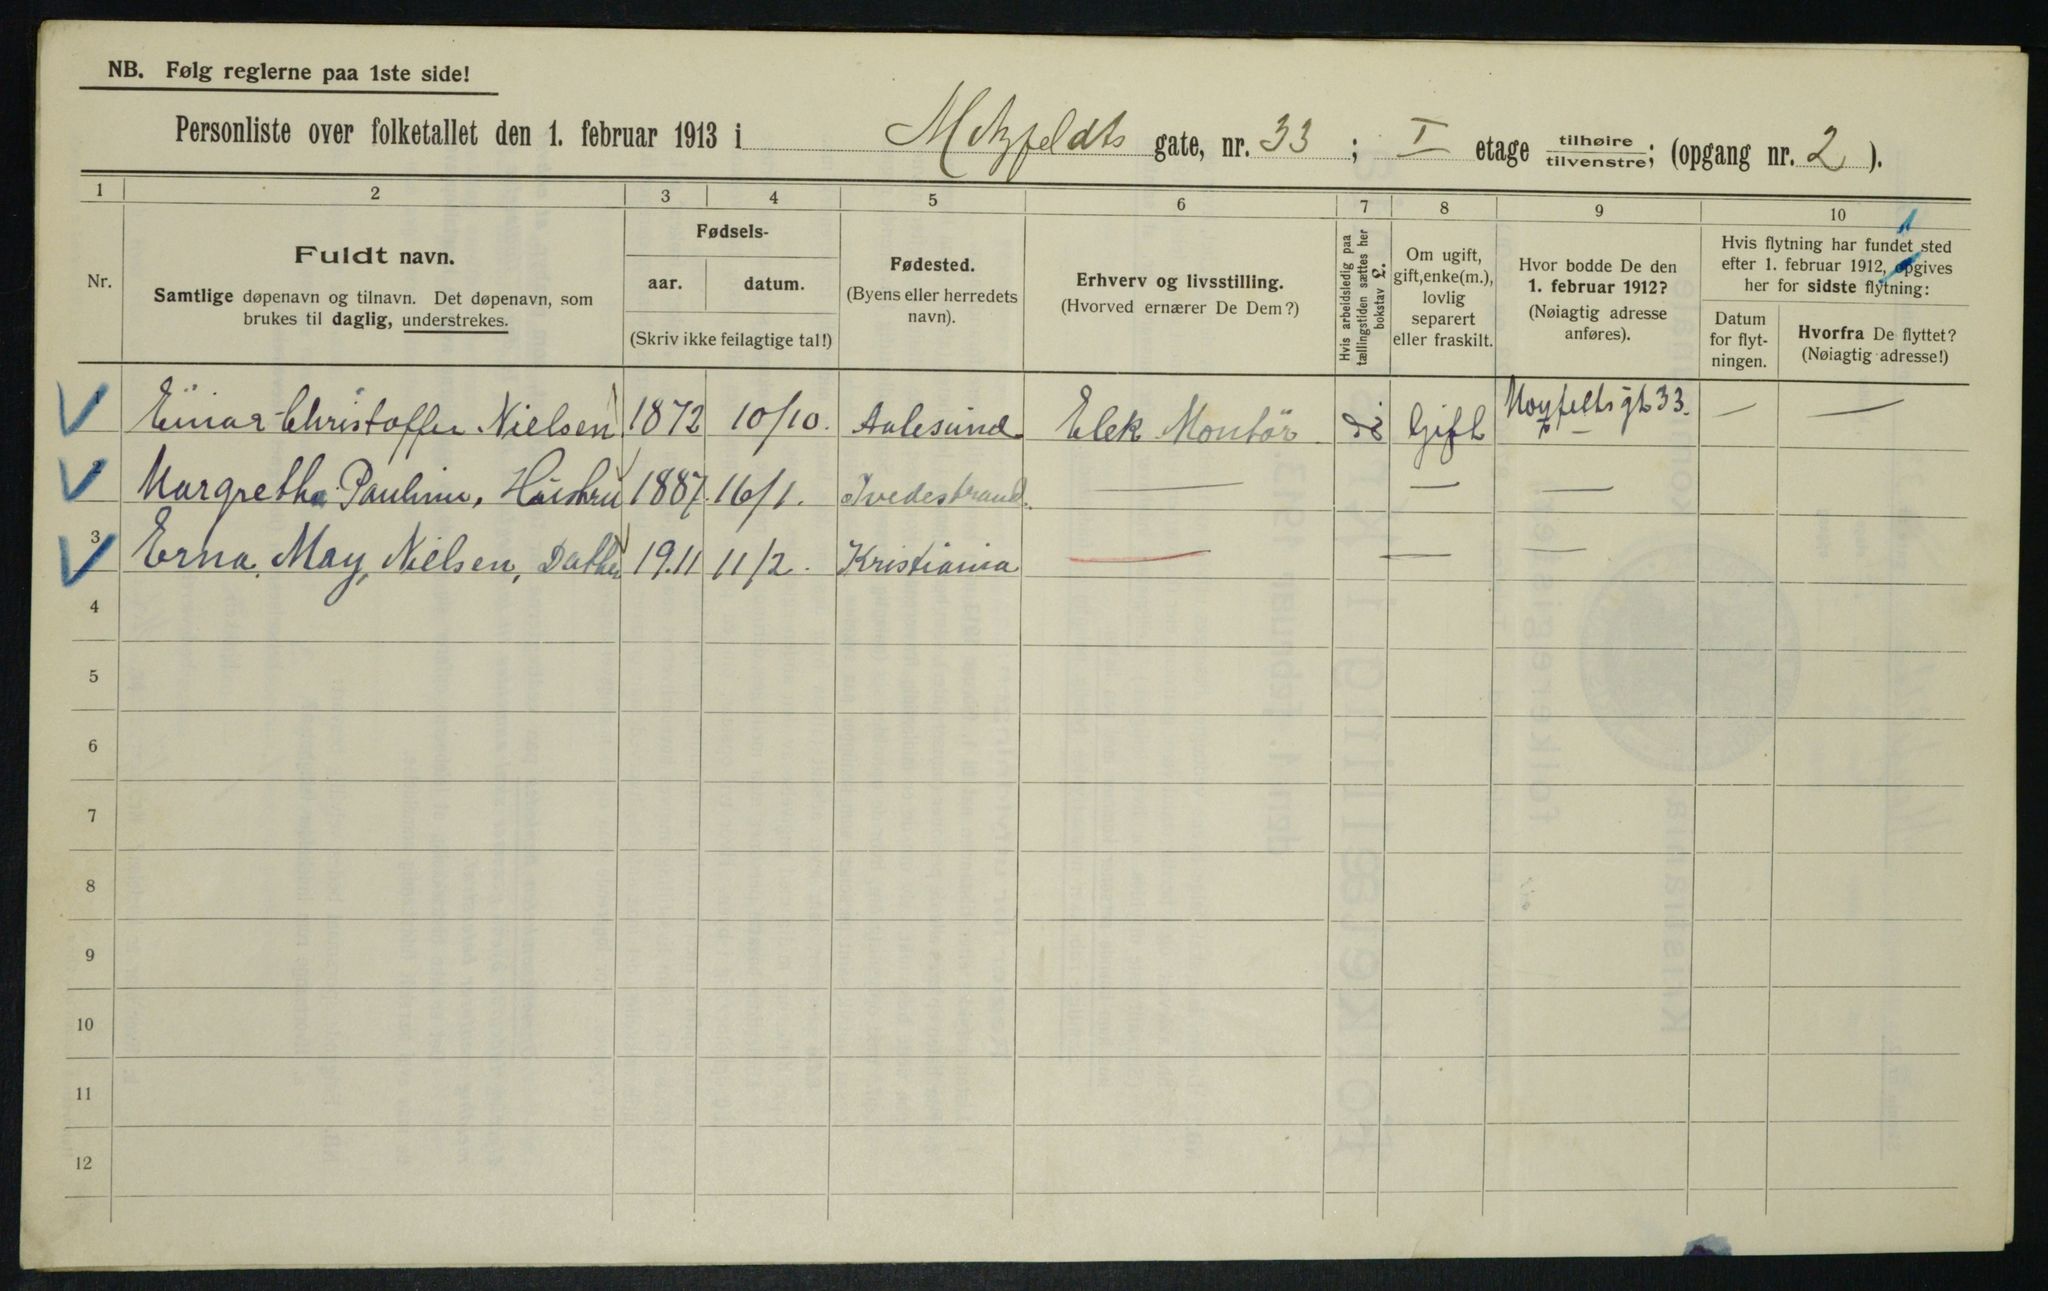 NB. Følg reglerne paa 1ste side!
Personliste over folketallet den 1. februar 1913 i Motzfeldts gate, nr. 33 ; I etage tilhøire / tilvenstre; (opgang nr. 2 ).
1 2 3 4 5 6 7 8 9 10
Nr.
Fuldt navn.
Samtlige døpenavn og tilnavn. Det døpenavn, som
brukes til daglig, understrekes.
Fødsels-
aar. datum.
(Skriv ikke feilagtige tal!)
Fødested.
(Byens eller herredets
navn).
Erhverv og livsstilling.
(Hvorved ernærer De Dem?)
Hvis arbeidsledig paa
tællingstiden sættes her
bokstav L.
Om ugift,
gift, enke(m.),
lovlig
separert
eller fraskilt.
Hvor bodde De den
1. februar 1912?
(Nøiagtig adresse
anføres).
Hvis flytning har fundet sted
efter 1. februar 1912, opgives
her for sidste flytning:
Datum
for flyt-
ningen.
Hvorfra De flyttet?
(Nøiagtig adresse!)
Einar Christoffer Nielsen 1872 10/10. Aalesund Elek Montör Gift 33. — —
Margrethe Pauline, Hustru 1887 16/1. Tvedestrand. — — —
3 Erna May Nielsen, Datter 1911 11/2. Kristiania — — —
4
5
6
7
8
9
10
11
12